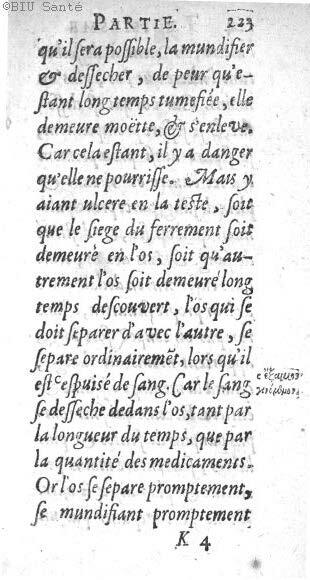 ©BIU Santé
PARTIE. 223
qu'il sera possible, la mundifier
& dessecher, de peur qu'e-
stant long temps tumefiée, elle
demeure moëtte, & s'enleve.
Car cela estant, il y a danger
qu'elle ne pourrisse. Mais y
aiant ulcere en la teste, soit
que le siege du ferrement soit
demeuré en l'os, soit qu'au-
trement l'os soit demeuré long
temps descouvert, l'os qui se
doit separer d'avec l'autre, se
separe ordinairemēt, lors qu'il
est ᶜespuisé de sang. Car le sang
se desseche dedans l'os, tant par
la longueur du temps, que par
la quantité des medicaments.
Or l'os se separe promptement,
se mundifiant promptement
K 4